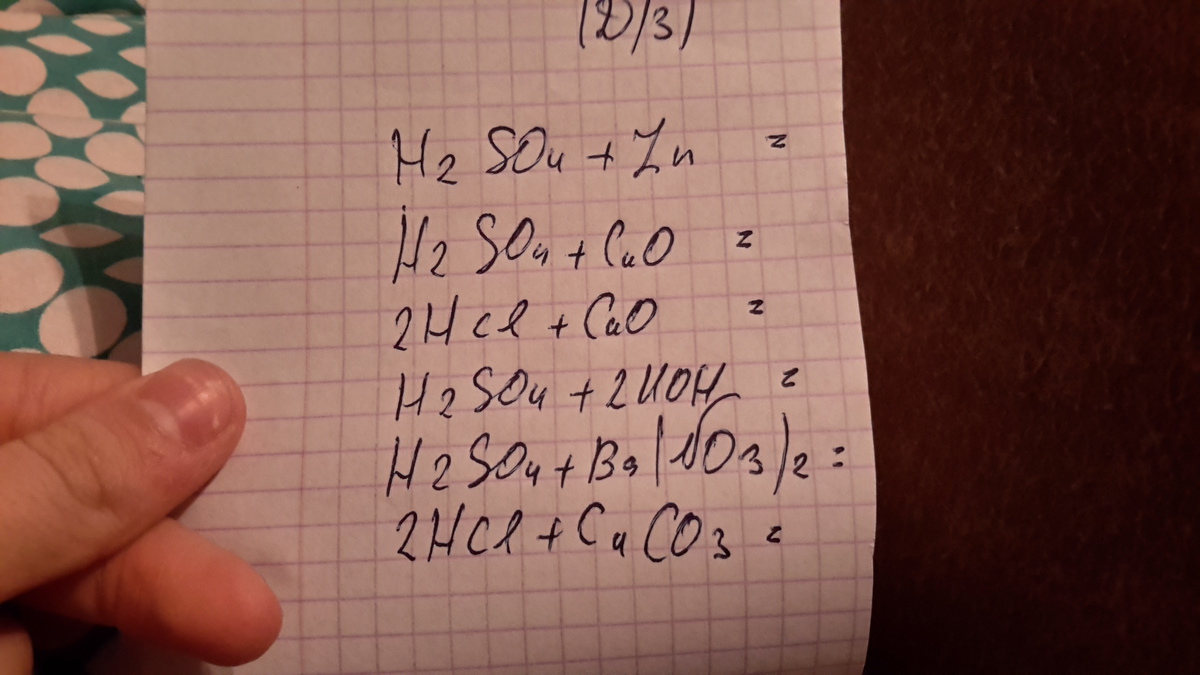 (D/З)
H2 SO4 + Zn =
H2 SO4 + CuO =
2HCl + CuO =
H2SO4 + 2KOH =
H2SO4 + Ba(NO3)2 =
2HCl + CaCO3 =